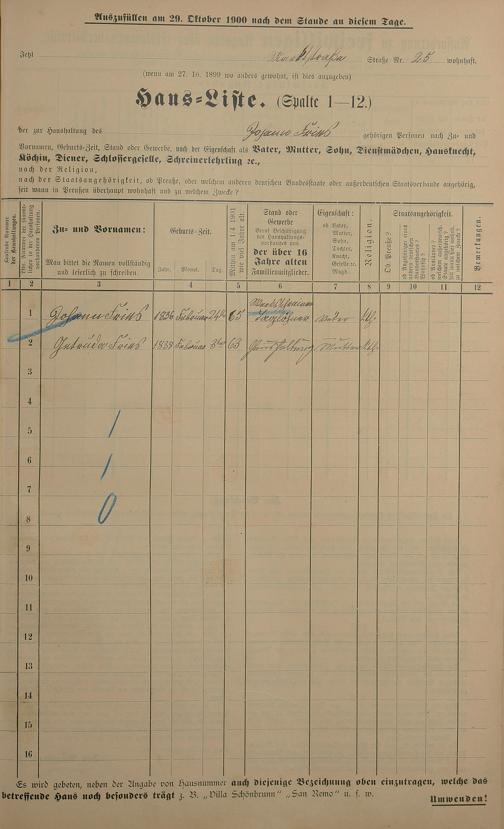 Auszufüllen am 29. Oktober 1900 nach dem Stande an diesem Tage.
Jetzt Straße Nr. 25 wohnhaft.
(wenn am 27. 10. 1899 wo anders gewohnt, ist dies anzugeben)
Haus-Liste. (Spalte 1—12.)
der zur Haushaltung des Johann Fries gehörigen Personen nach Zu- und
Vornamen, Geburts-Zeit, Stand oder Gewerbe, nach der Eigenschaft als Vater, Mutter, Sohn, Dienstmädchen, Hausknecht,
Köchin, Diener, Schlossergeselle, Schreinerlehrling ꝛc.,
nach der Religion,
nach der Staatsangehörigkeit, ob Preuße, oder welchem anderen deutschen Bundesstaate oder außerdeutschen Staatsverbande angehörig,
seit wann in Preußen überhaupt wohnhaft und zu welchem Zwecke?
Zu- und Vornamen:
Man bittet die Namen vollständig und leserlich zu schreiben
Geburts-Zeit.
Jahr. Monat. Tag.
Mithin am 1.4 1901 wie viel Jahre alt.
Stand oder Gewerbe
der über 16 Jahre alten Familienmitglieder.
Eigenschaft:
ob Vater, Mutter, Sohn, Tochter, Knecht, Geselle ꝛc. Magd.
Religion.
Staatsangehörigkeit.
Ob Preuße?
Bemerkungen.
1 2 3 4 5 6 7 8 9 10 11 12
1 Johann Fries 1836 Februar 24 65 Tagelöhner Vater
2 Gertruda Fries 1838 Februar 3 63 Haushaltung Mutter
3
4
5 1
6 1
7
8 0
9
10
11
12
13
14
15
16
Es wird gebeten, neben der Angabe von Hausnummer auch diejenige Bezeichnung oben einzutragen, welche das
betreffende Haus noch besonders trägt z. B. „Villa Schönbrunn" „San Remo" u. s. w.
Umwenden!